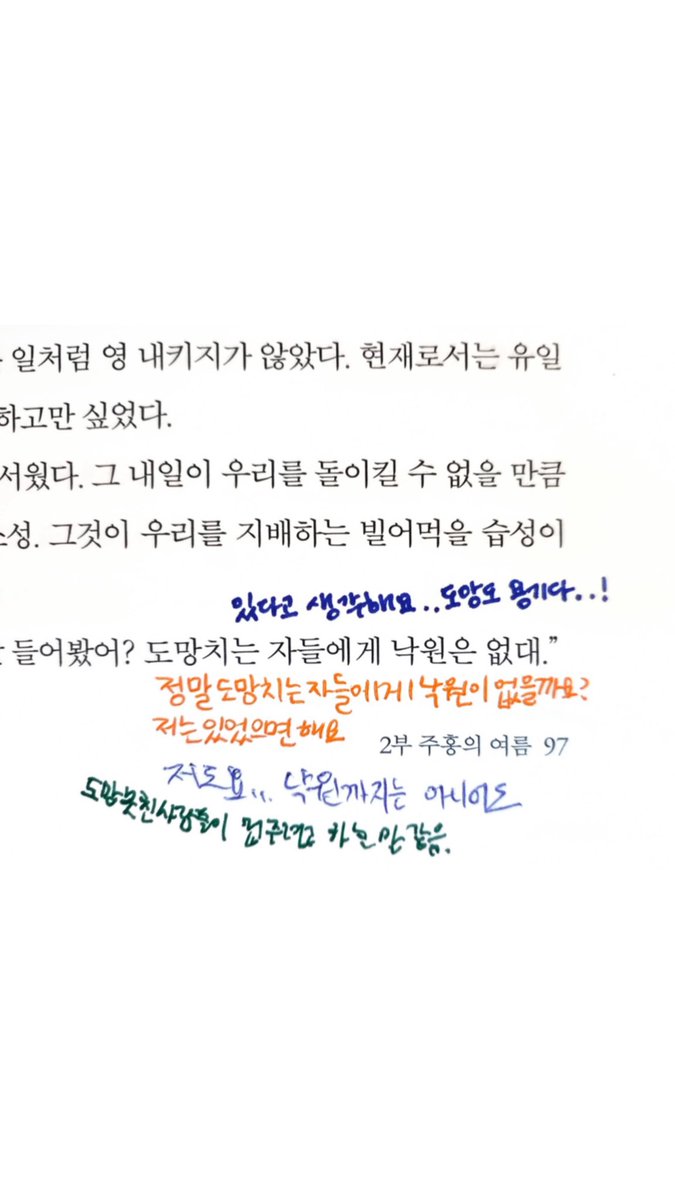 일처럼 영 내키지가 않았다. 현재로서는 유일
하고만 싶었다.
서웠다. 그 내일이 우리를 돌이킬 수 없을 만큼
성. 그것이 우리를 지배하는 빌어먹을 습성이
있다고 생각해요..도망도 용기다..!
들어봤어? 도망치는 자들에게 낙원은 없대.”
정말 도망치는 자들에게 낙원이 없을까요?
저는 있었으면 해요
2부 주홍의 여름 97
저도요... 낙원까지는 아니어도
도망 못 친 사람들이 겁주려고 하는 말 같음.